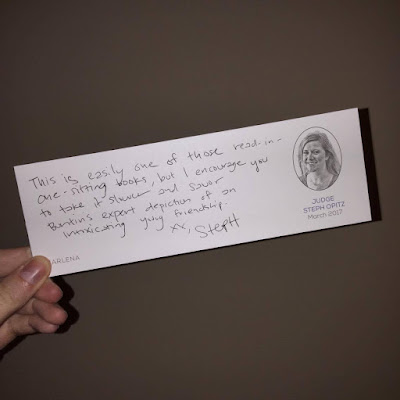 This is easily one of those read-in-
one-sitting books, but I encourage you
to take it slower and savor
Buntin's expert depiction of an
intoxicating young friendship.
xx, Steph
JUDGE
STEPH OPITZ
March 2017
ARLENA